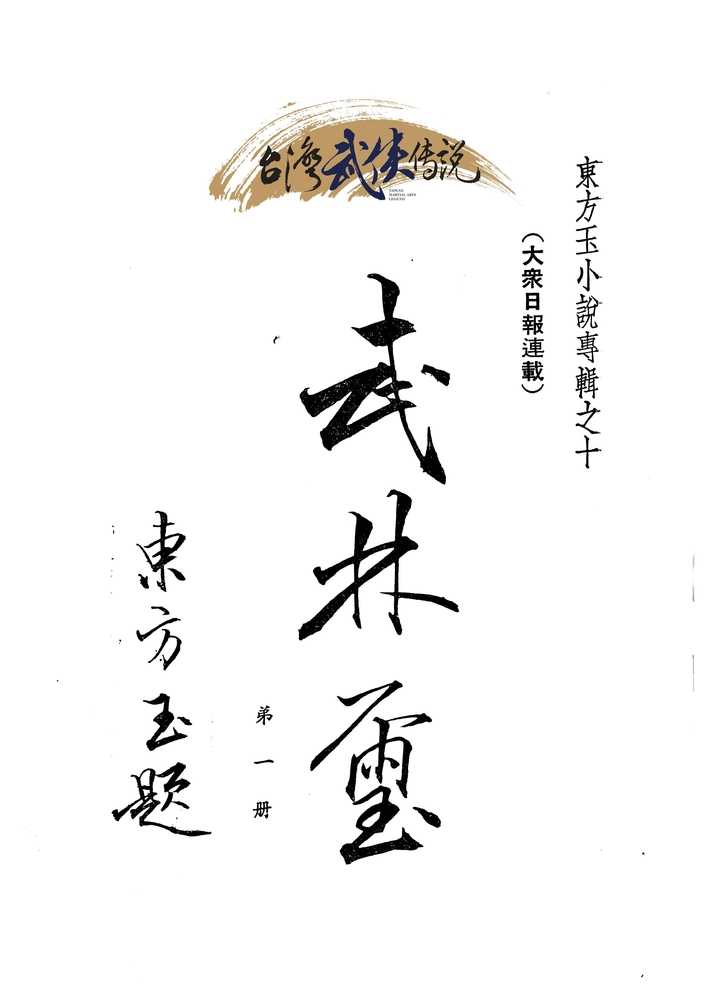 台灣武俠传説
TAIWAN
MARTIAL ARTS
LEGEND
東方玉小說專輯之十
（大衆日報連載）
武林璽
第一册
東方玉題